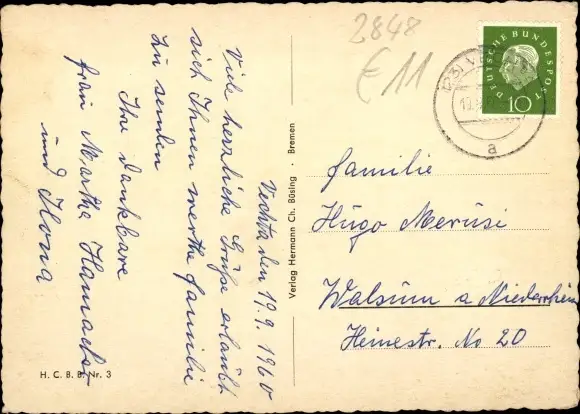 Vechta den 19.9.1960
Viele herzliche Grüße erlaubt
sich Ihnen werthe Familie
zu senden
Ihre dankbare
Frau Martha Hamacher
und Ilona
H. C. B. B. Nr. 3
Verlag Hermann Ch. Büsing · Bremen
2848
€ 11
DEUTSCHE BUNDESPOST
10
(23) VE
a
Familie
Hugo Merüsi
Walsum a Niederrhein
Heinestr. No 20